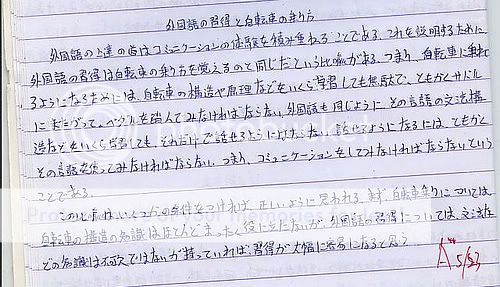 外国語の習得と自転車の乗り方
外国語の上達の道はコミュニケーションの体験を積み重ねることである。これを説明するために
外国語の習得は自転車の乗り方を覚えるのと同じだという比喩がある。つまり、自転車に乗れ
るようになるためには、自転車の構造や原理などをいくら学習しても無駄で、ともかくサドル
にまたがって、ペダルを踏んでみなければならない。外国語も同じように、その言語の文法構
造などをいくら学習しても、それだけで話せるようにはならない。話せるようになるには、ともかく
その言語を使ってみなければならない。つまり、コミュニケーションをしてみなければならないという
ことである。
この比喩はいくつかの条件をつければ、正しいように思われる。まず、自転車乗りについては、
自転車の構造の知識はほとんどまったく役に立たないが、外国語の習得については、文法な
どの知識は不可欠ではないが持っていれば、習得が大幅に容易になると思う。
A
5/23